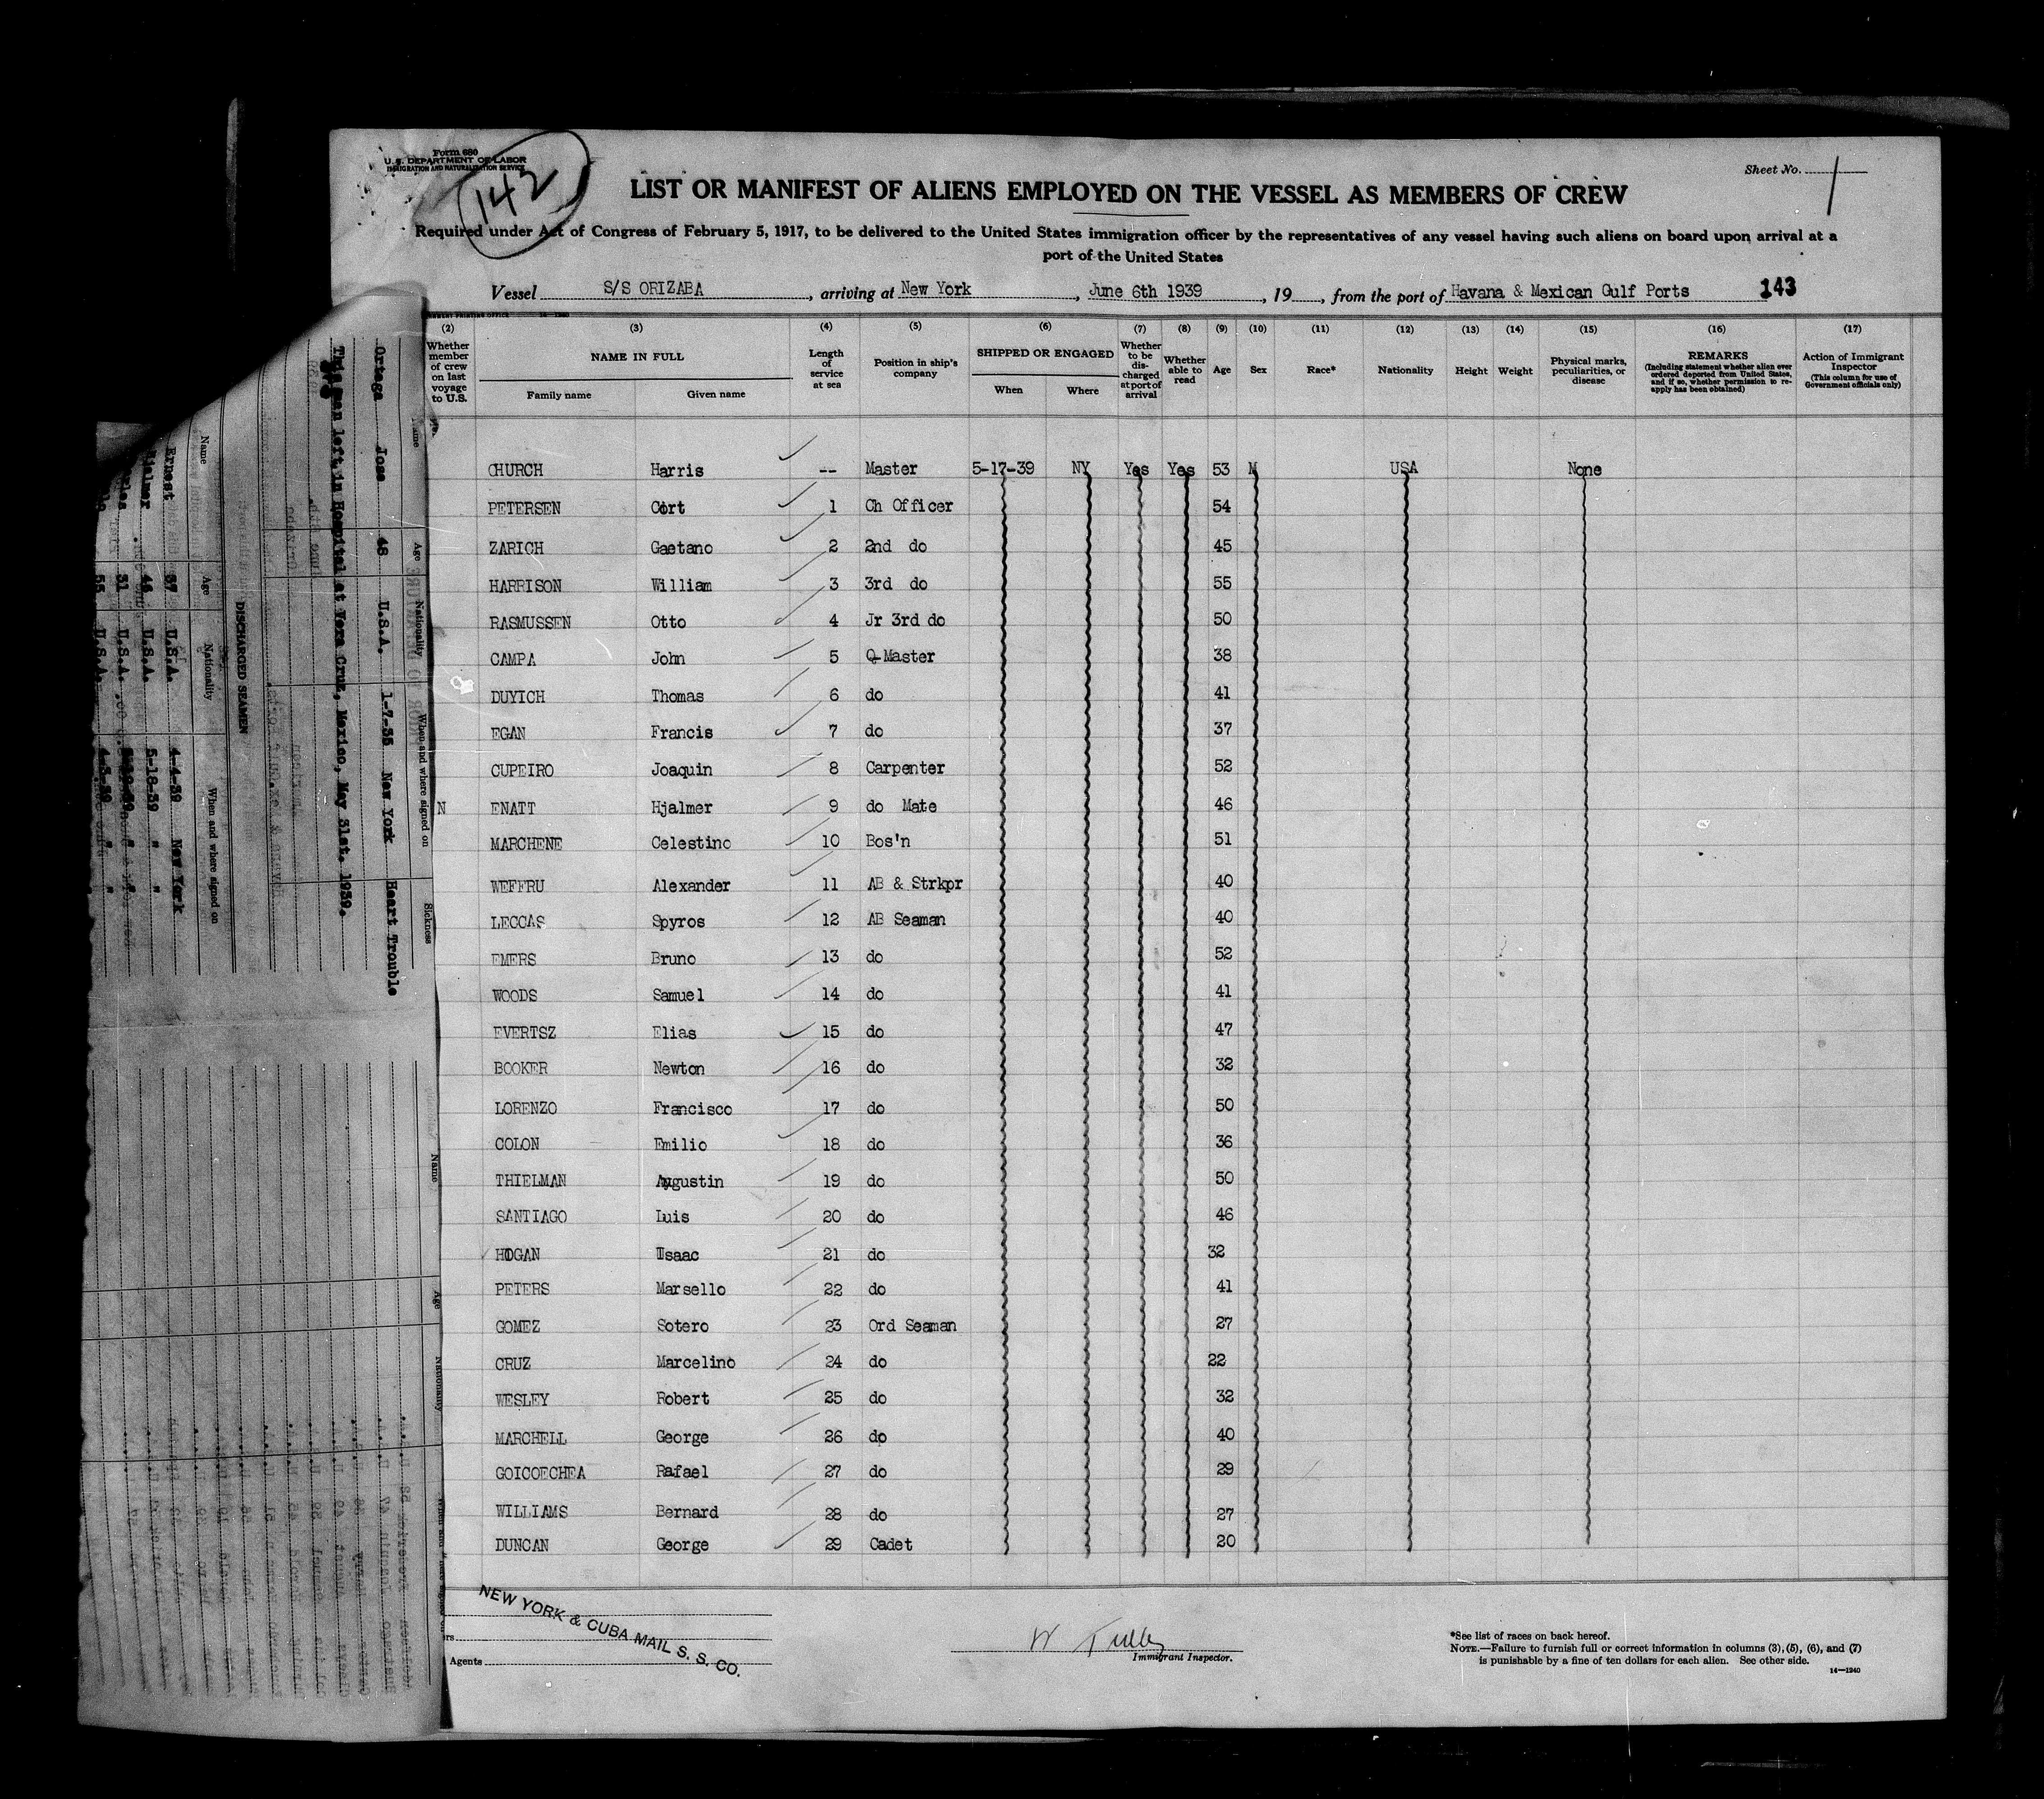 Form 680
U. S. DEPARTMENT OF LABOR
IMMIGRATION AND NATURALIZATION SERVICE
142
Sheet No. 1
LIST OR MANIFEST OF ALIENS EMPLOYED ON THE VESSEL AS MEMBERS OF CREW
Required under Act of Congress of February 5, 1917, to be delivered to the United States immigration officer by the representatives of any vessel having such aliens on board upon arrival at a
port of the United States
Vessel S/S ORIZABA, arriving at New York, June 6th 1939, 19, from the port of Havana & Mexican Gulf Ports 143
(2) (3) (4) (5) (6) (7) (8) (9) (10) (11) (12) (13) (14) (15) (16) (17)
Whether member of crew on last voyage to U.S. NAME IN FULL Family name Given name Length of service at sea Position in ship's company SHIPPED OR ENGAGED When Where Whether to be discharged at port of arrival Whether able to read Age Sex Race* Nationality Height Weight Physical marks, peculiarities, or disease REMARKS (Including statement whether alien ever ordered deported from United States, and if so, whether permission to reapply has been obtained) Action of Immigrant Inspector (This column for use of Government officials only)
CHURCH Harris -- Master 5-17-39 NY Yes Yes 53 M USA None
PETERSEN Cort 1 Ch Officer 54
ZARICH Gaetano 2 2nd do 45
HARRISON William 3 3rd do 55
RASMUSSEN Otto 4 Jr 3rd do 50
CAMPA John 5 Q-Master 38
DUYICH Thomas 6 do 41
EGAN Francis 7 do 37
CUPEIRO Joaquin 8 Carpenter 52
N ENATT Hjalmer 9 do Mate 46
MARCHENE Celestino 10 Bos'n 51
WEFFRU Alexander 11 AB & Strkpr 40
LECCAS Spyros 12 AB Seaman 40
EMERS Bruno 13 do 52
WOODS Samuel 14 do 41
EVERTSZ Elias 15 do 47
BOOKER Newton 16 do 32
LORENZO Francisco 17 do 50
COLON Emilio 18 do 36
THIELMAN Augustin 19 do 50
SANTIAGO Luis 20 do 46
HOGAN Isaac 21 do 32
PETERS Marsello 22 do 41
GOMEZ Sotero 23 Ord Seaman 27
CRUZ Marcelino 24 do 22
WESLEY Robert 25 do 32
MARCHELL George 26 do 40
GOICOECHEA Rafael 27 do 29
WILLIAMS Bernard 28 do 27
DUNCAN George 29 Cadet 20
NEW YORK & CUBA MAIL S. S. CO.
Agents
W Tulley
Immigrant Inspector.
*See list of races on back hereof.
NOTE.—Failure to furnish full or correct information in columns (3), (5), (6), and (7)
is punishable by a fine of ten dollars for each alien. See other side.
14—1240
Age Nationality When and where signed on Sickness
Ortega Jose 48 U.S.A. 1-7-35 New York Heart Trouble
This man left in Hospital at Vera Cruz, Mexico, May 31st. 1939.
DISCHARGED SEAMEN
Name Age Nationality When and where signed on
Ernest 37 U.S.A. 4-4-39 New York
Hjalmer 46 U.S.A. 5-18-39 "
31 U.S.A. "
55 U.S.A. 4-3-39 "
Name Age Nationality